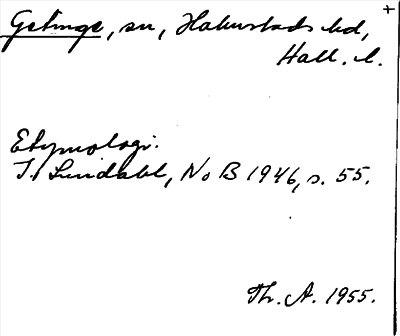 Getinge, sn, Halmstads hd, +
Hall. l.
Etymologi.
I. Lindahl, NoB 1946, s. 55.
Th. A. 1955.